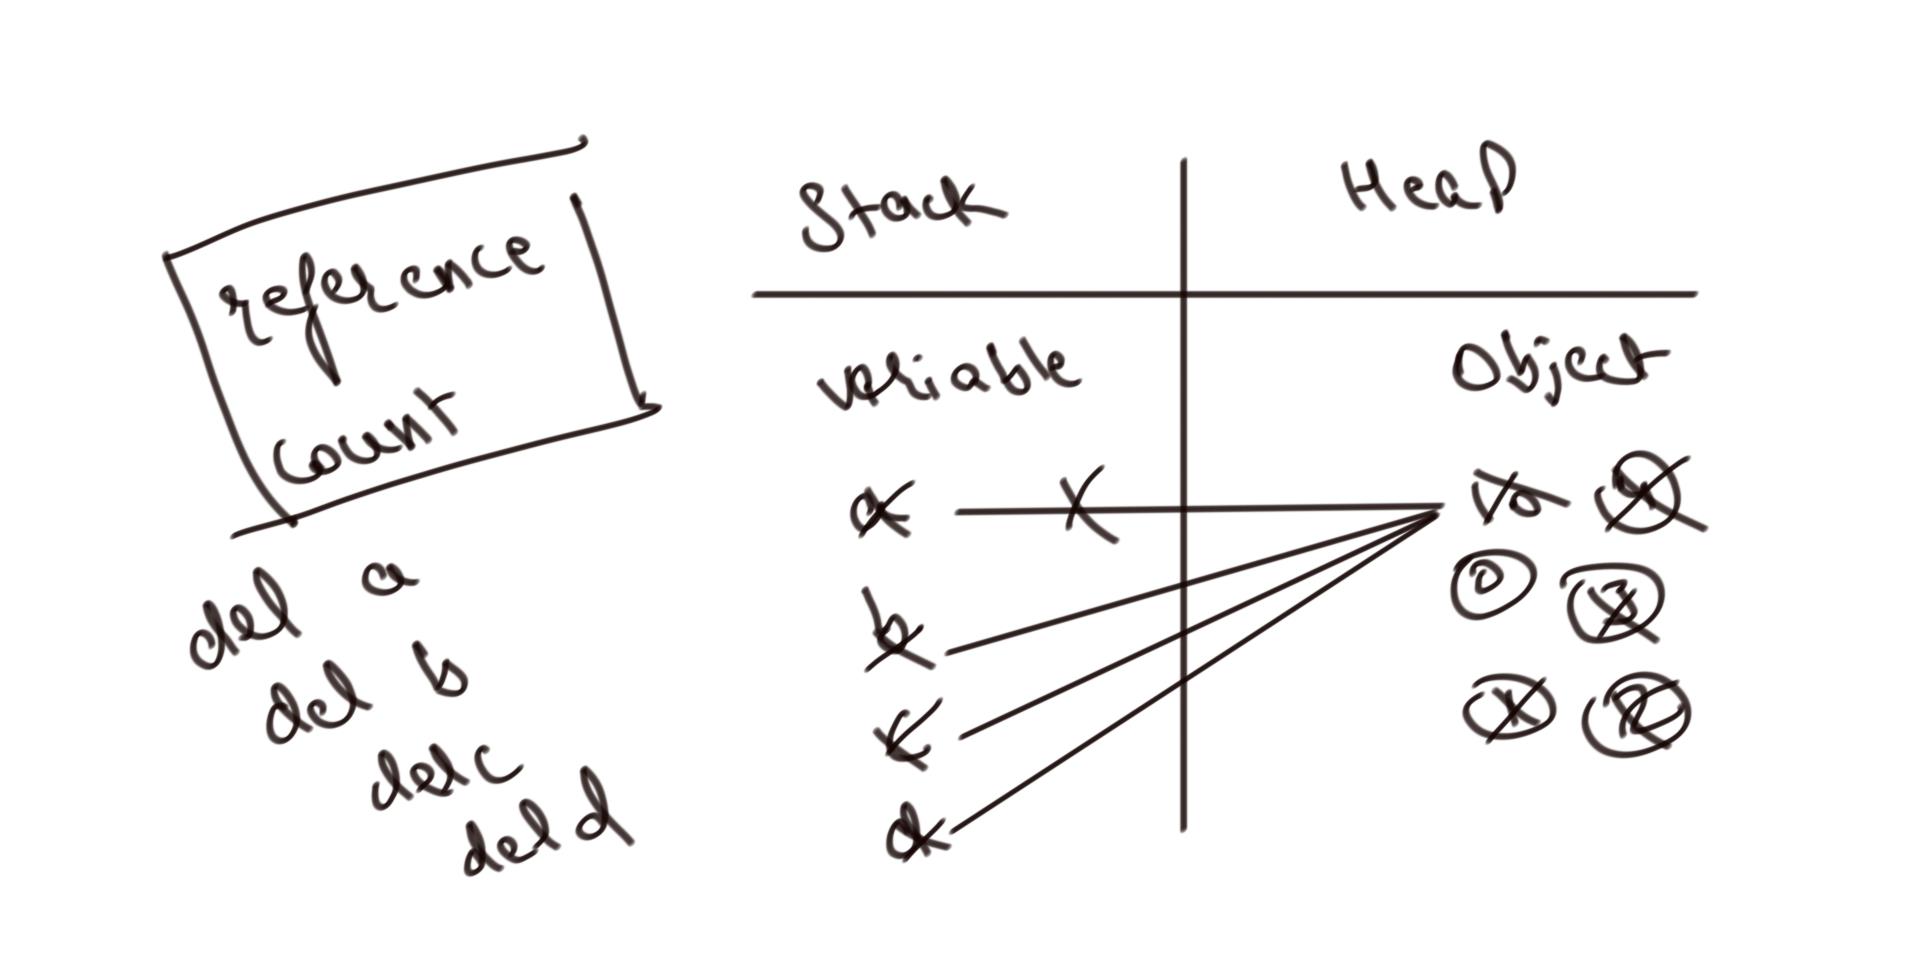 reference
count
del a
del b
del c
del d
Stack Heap
variable Object
a 10 4
b 0 3
c 1 2
d